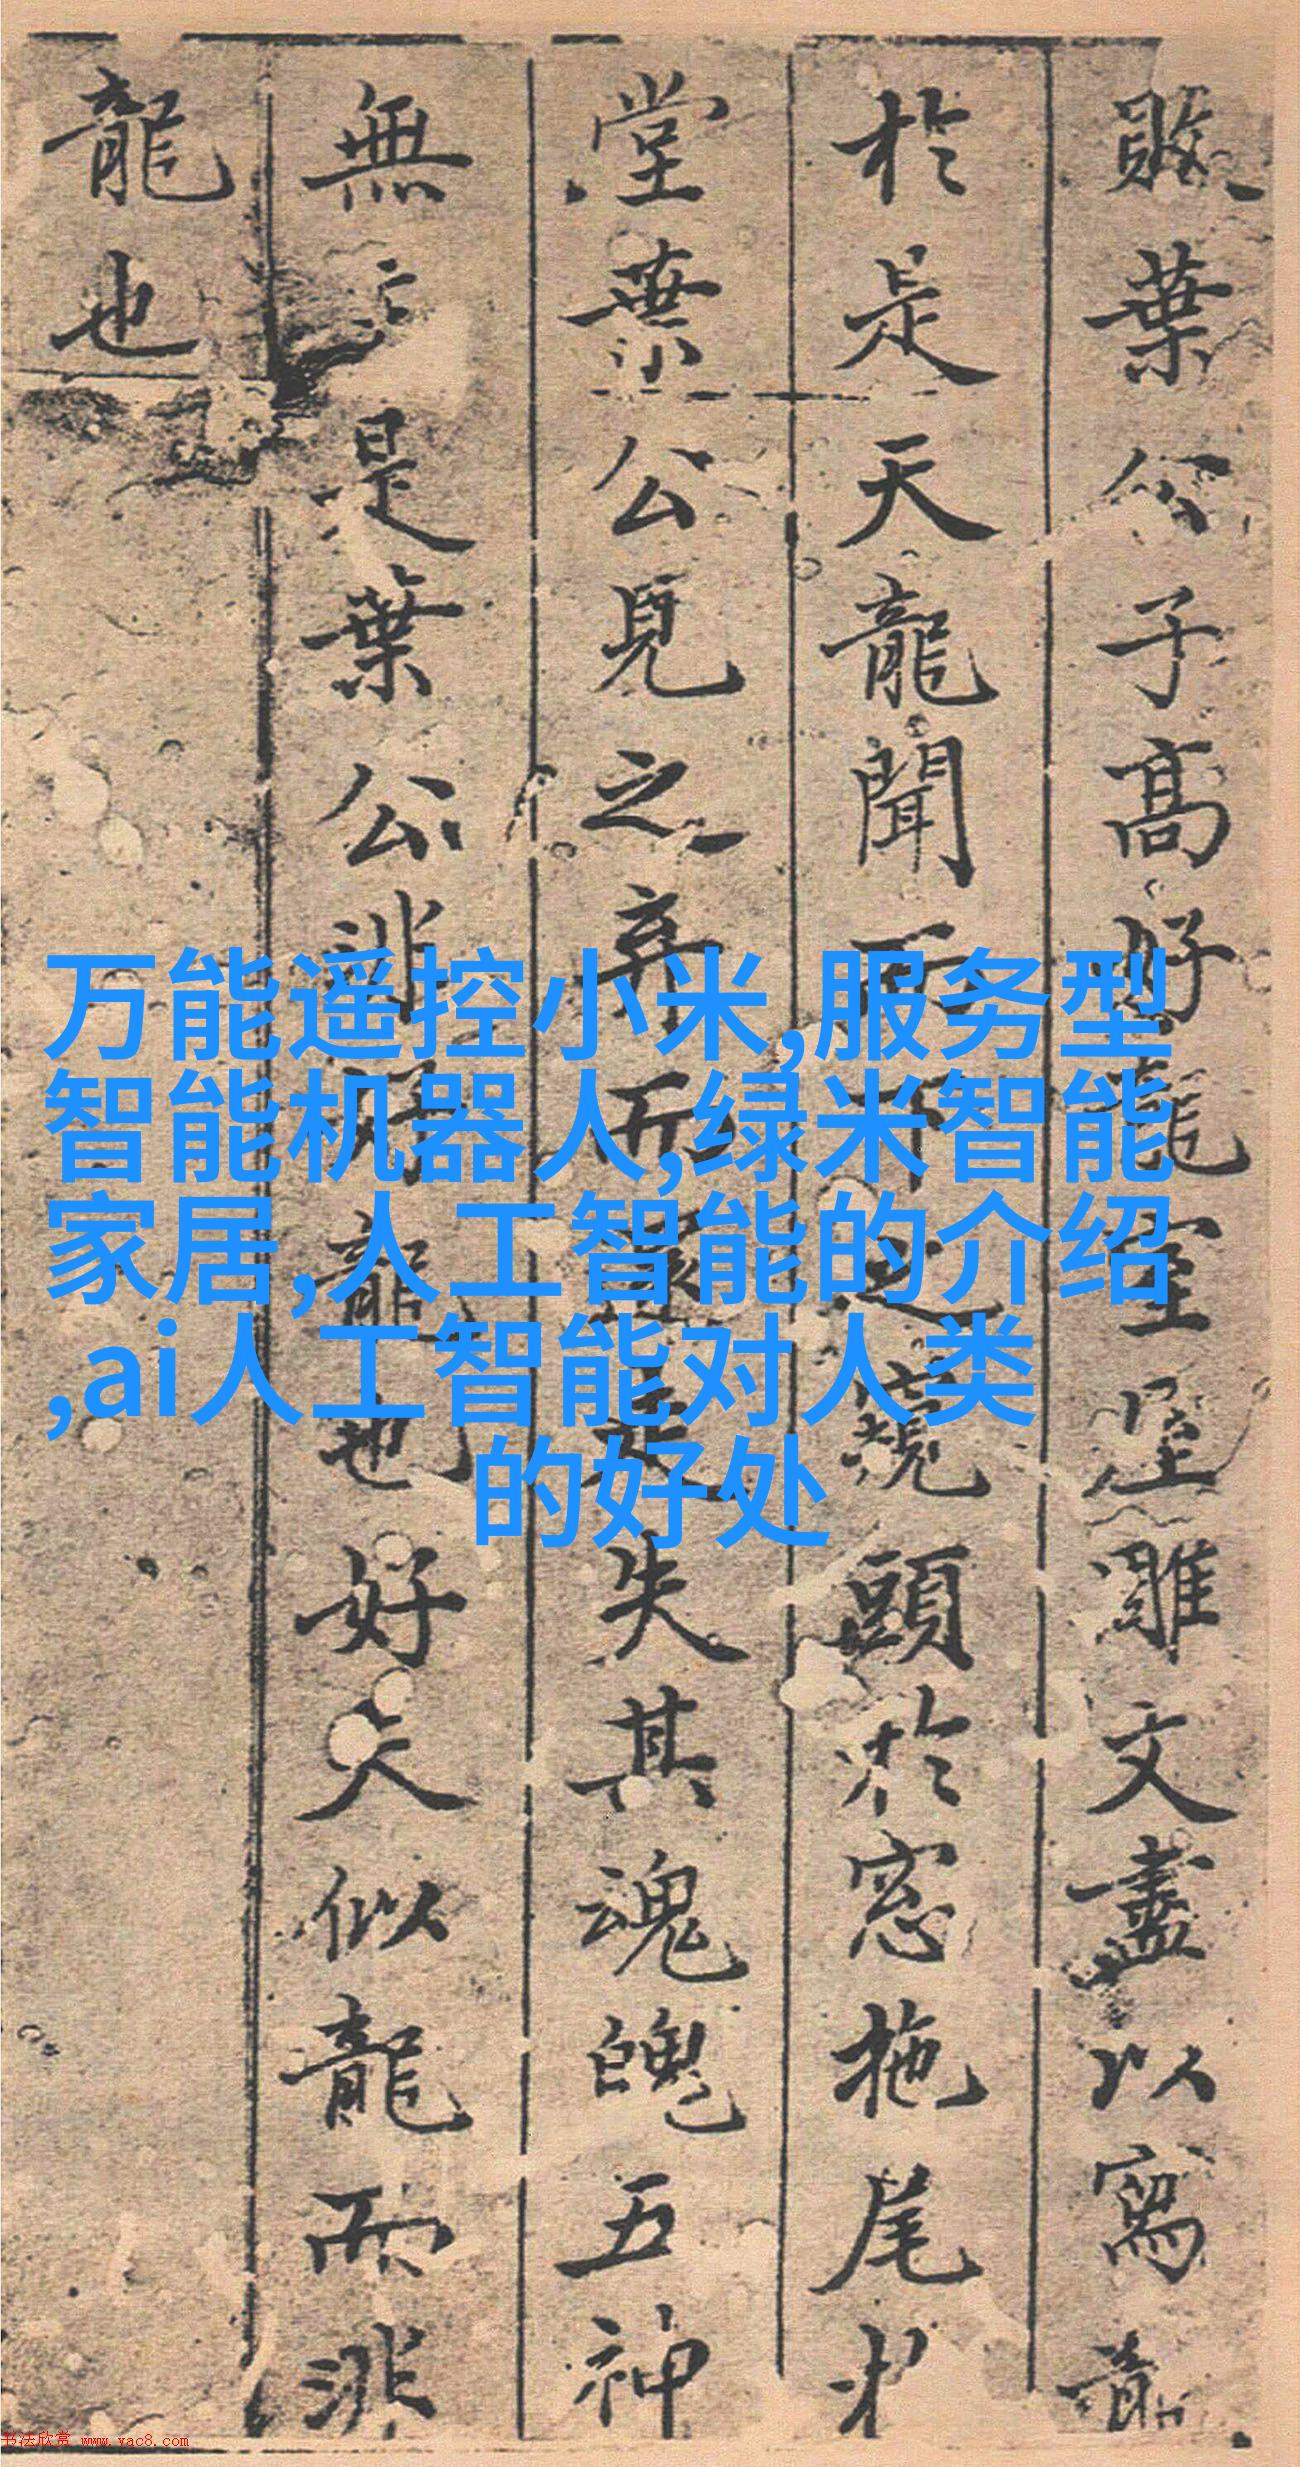 敗葉公子高好龍室屋雕文盡以寫龍
於是天龍聞而下之窺頭於窓拖尾於
堂葉公見之弃而還走失其魂魄五神
無主是葉公非好龍也好夫似龍而非
龍也
万能遥控小米,服务型
智能机器人,绿米智能
家居,人工智能的介绍
,ai人工智能对人类
的好处
书法欣赏 www.yac8.com